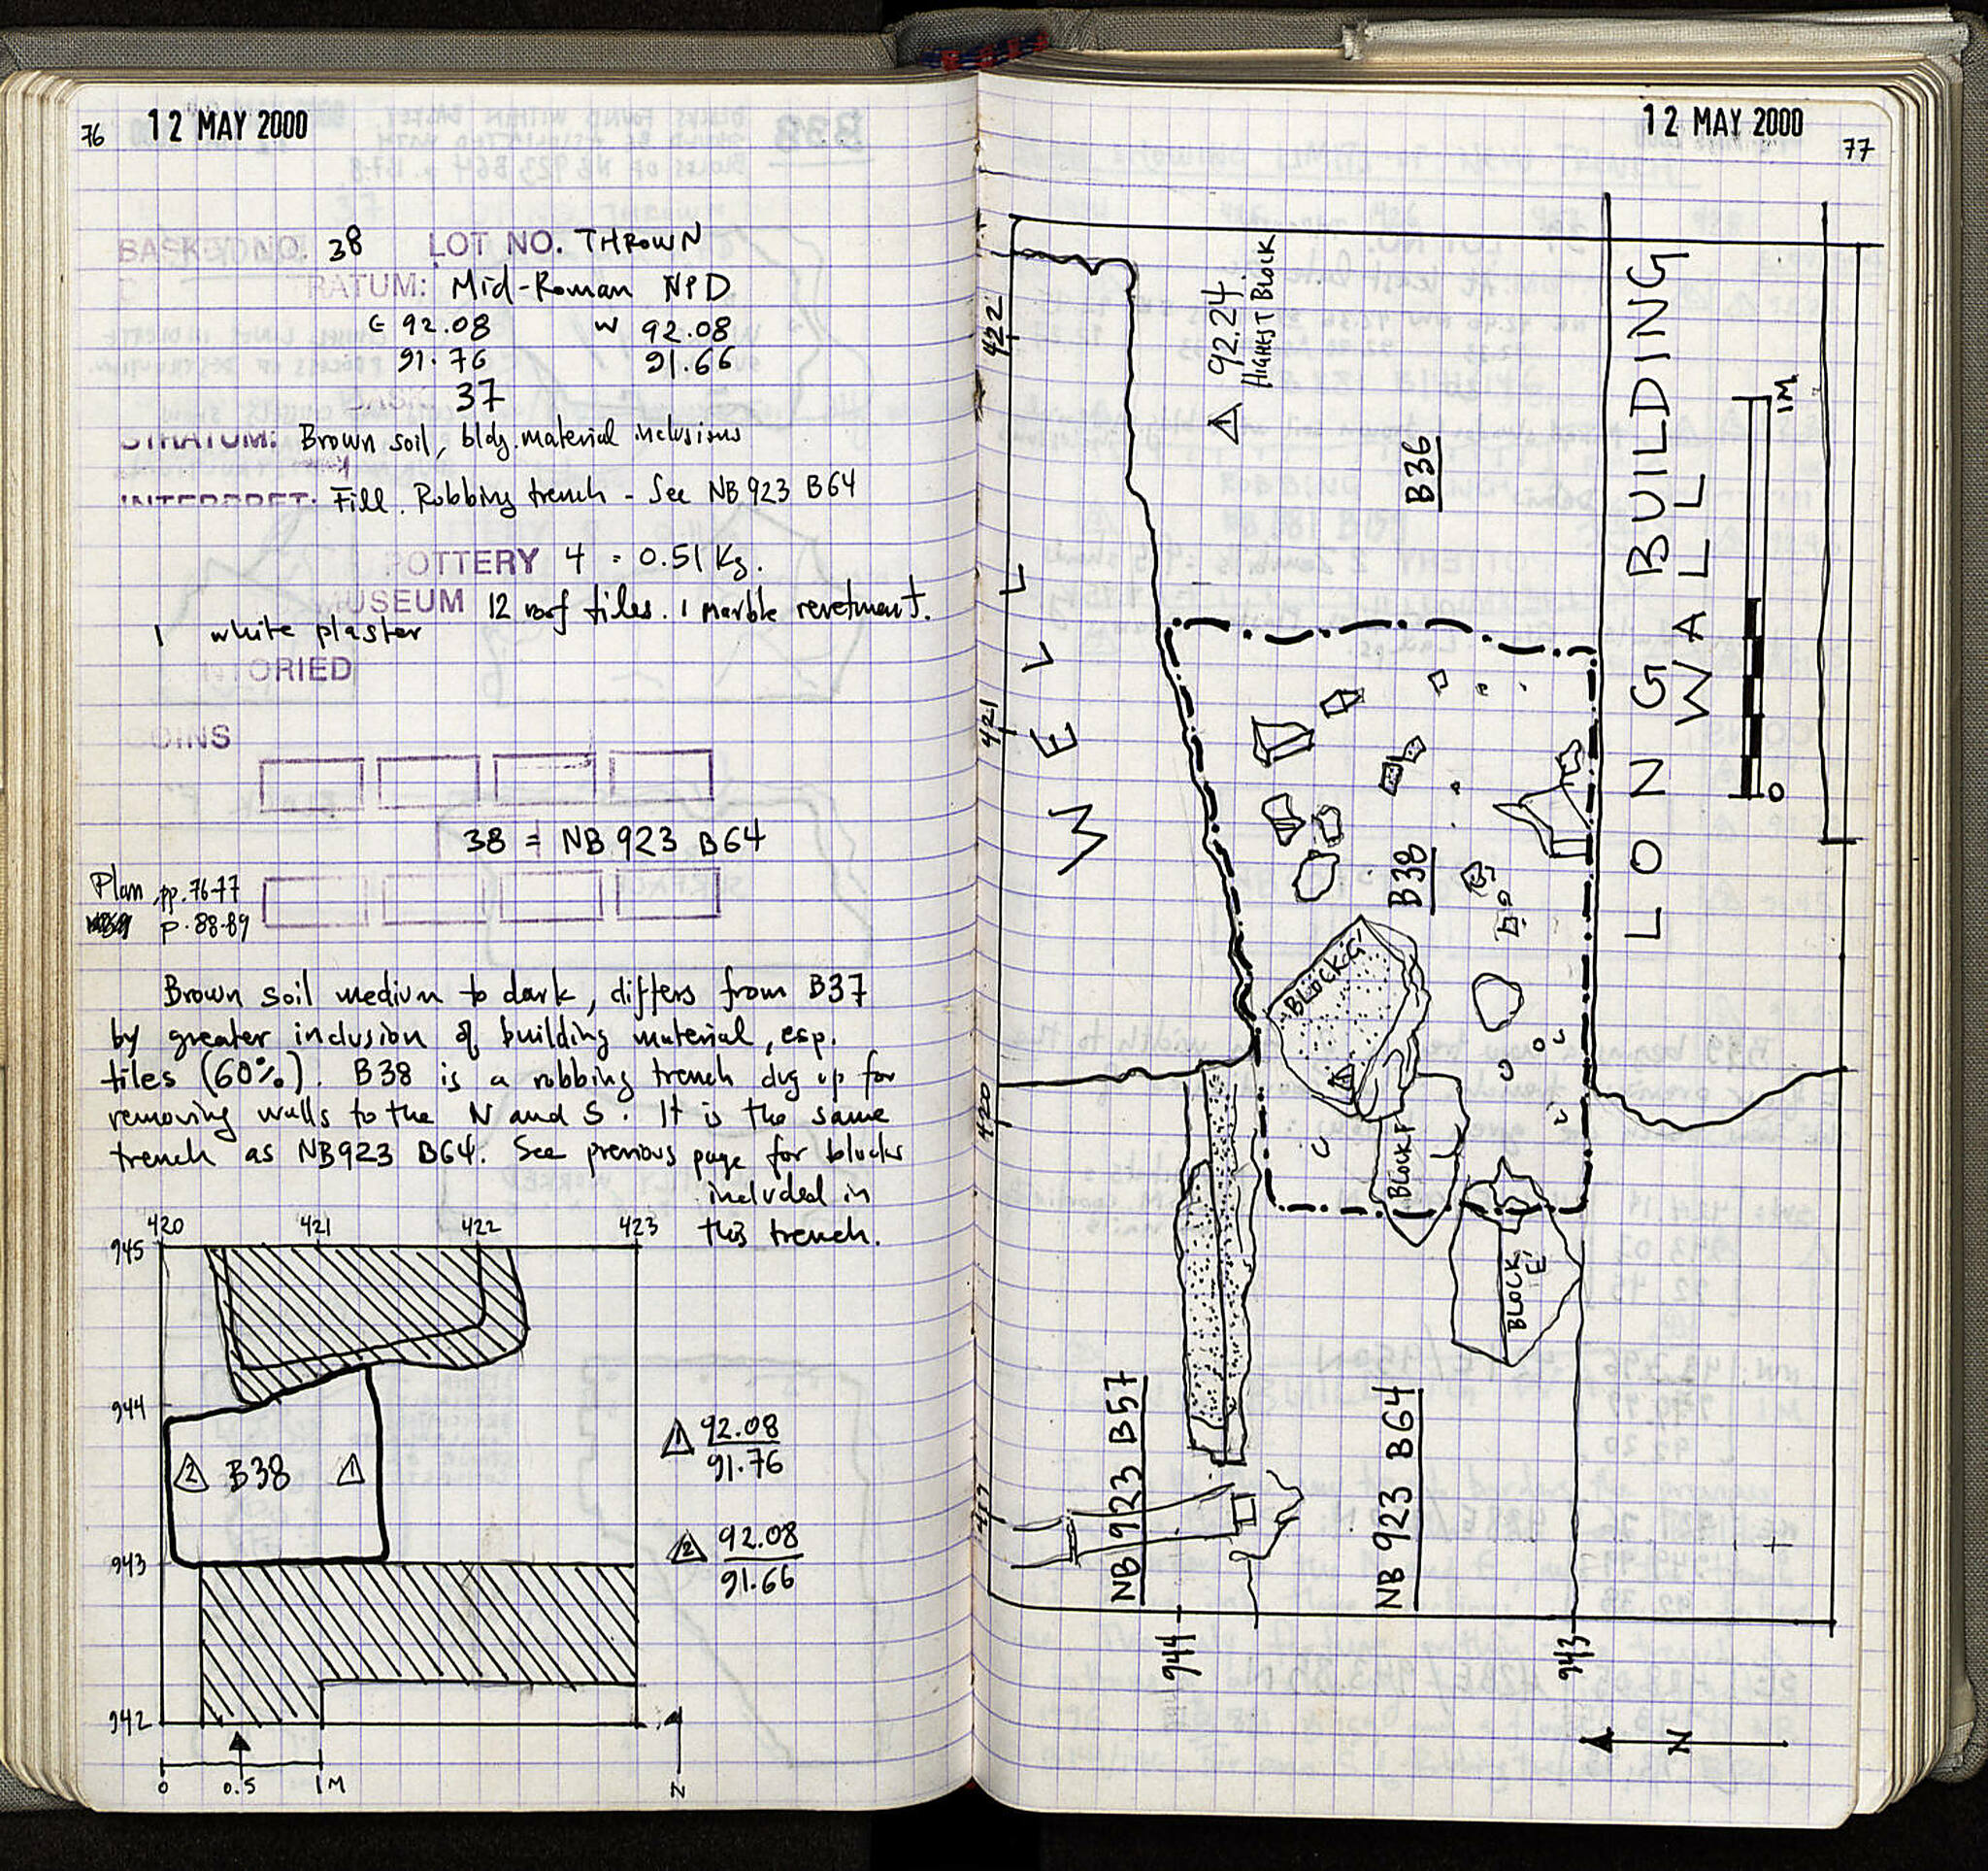 76 12 MAY 2000
BASKET NO. 38 LOT NO. THROWN
C TRATUM: Mid-Roman NPD
E 92.08 W 92.08
91.76 91.66
37
STRATUM: Brown soil, bldg. material inclusions
INTERPRET: Fill. Robbing trench - See NB 923 B64
POTTERY 4 = 0.51 Kg.
MUSEUM 12 roof tiles. 1 marble revetment.
1 white plaster
NTORIED
COINS
38 = NB 923 B64
Plan pp. 76-77
p. 88-89
Brown soil medium to dark, differs from B37
by greater inclusion of building material, esp.
tiles (60%). B38 is a robbing trench dug up for
removing walls to the N and S. It is the same
trench as NB923 B64. See previous page for blocks
included in
this trench.
420 421 422 423
945
944
2 B38 1
943
942
1 92.08
91.76
2 92.08
91.66
0 0.5 1M
N
12 MAY 2000
77
422
421
420
419
WELL
1 92.24
HIGHEST BLOCK
B36
LONG BUILDING
WALL
1M
0
B38
BLOCK G
1
BLOCK F
BLOCK E
NB 923 B57
NB 923 B64
944
943
N